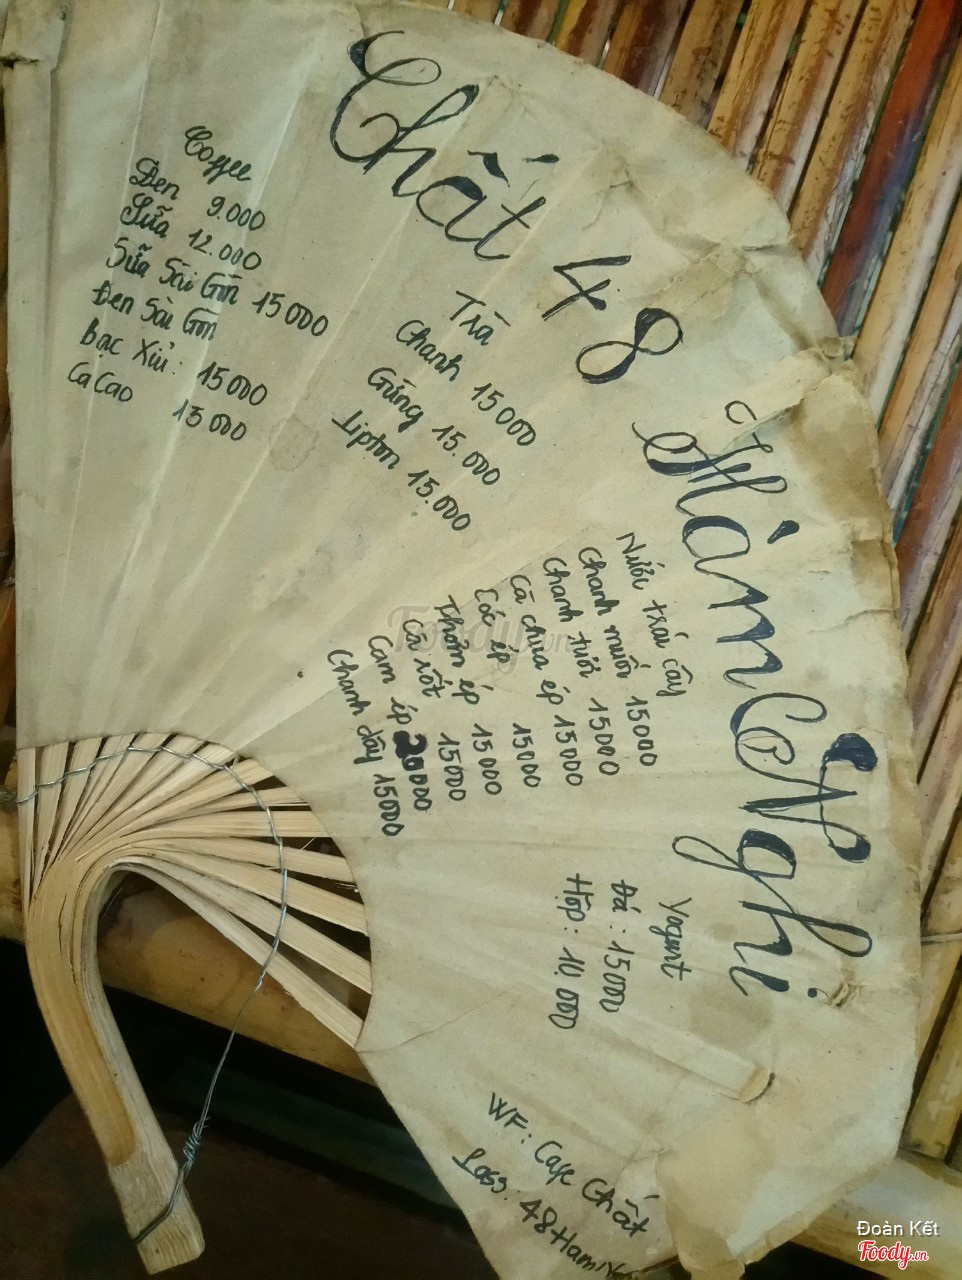 Chất 48 Hàm Nghi
Coffee
Đen 9.000
Sữa 12.000
Sữa Sài Gòn 15000
Đen Sài Gòn
Bạc Xỉu: 15000
Ca Cao 15000
Trà
Chanh 15000
Gừng 15.000
Lipton 15.000
Nước trái cây
Chanh muối 15000
Chanh tươi 15000
Cà chua ép 15000
Cóc ép 15000
Thơm ép 15000
Cà rốt 15000
Cam ép 20000
Chanh dây 15000
Yogurt
Đá: 15000
Hộp: 10.000
WF: Cafe Chất
Pass: 48Ham
Foody.vn
Đoàn Kết
Foody.vn